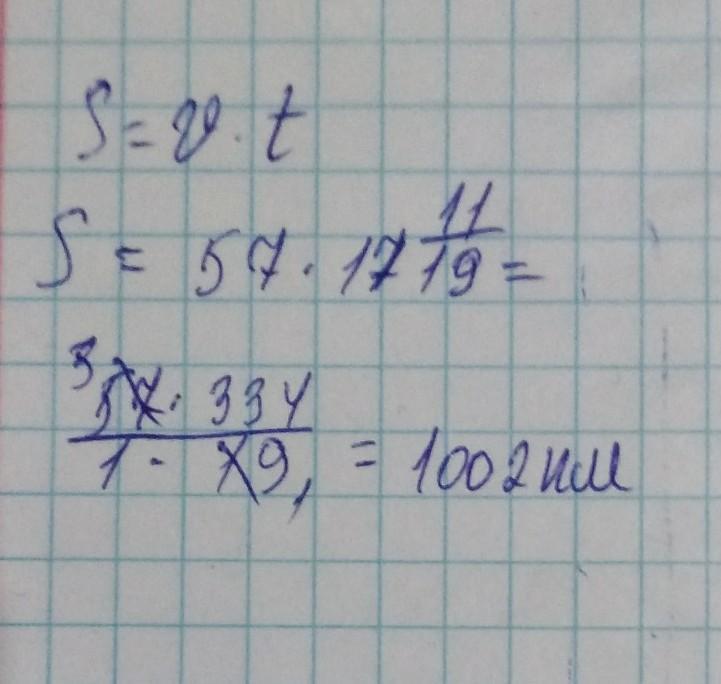 S = v · t
S = 57 · 17 11/19 =
3 57 · 334 / 1 · 19 1 = 1002 км